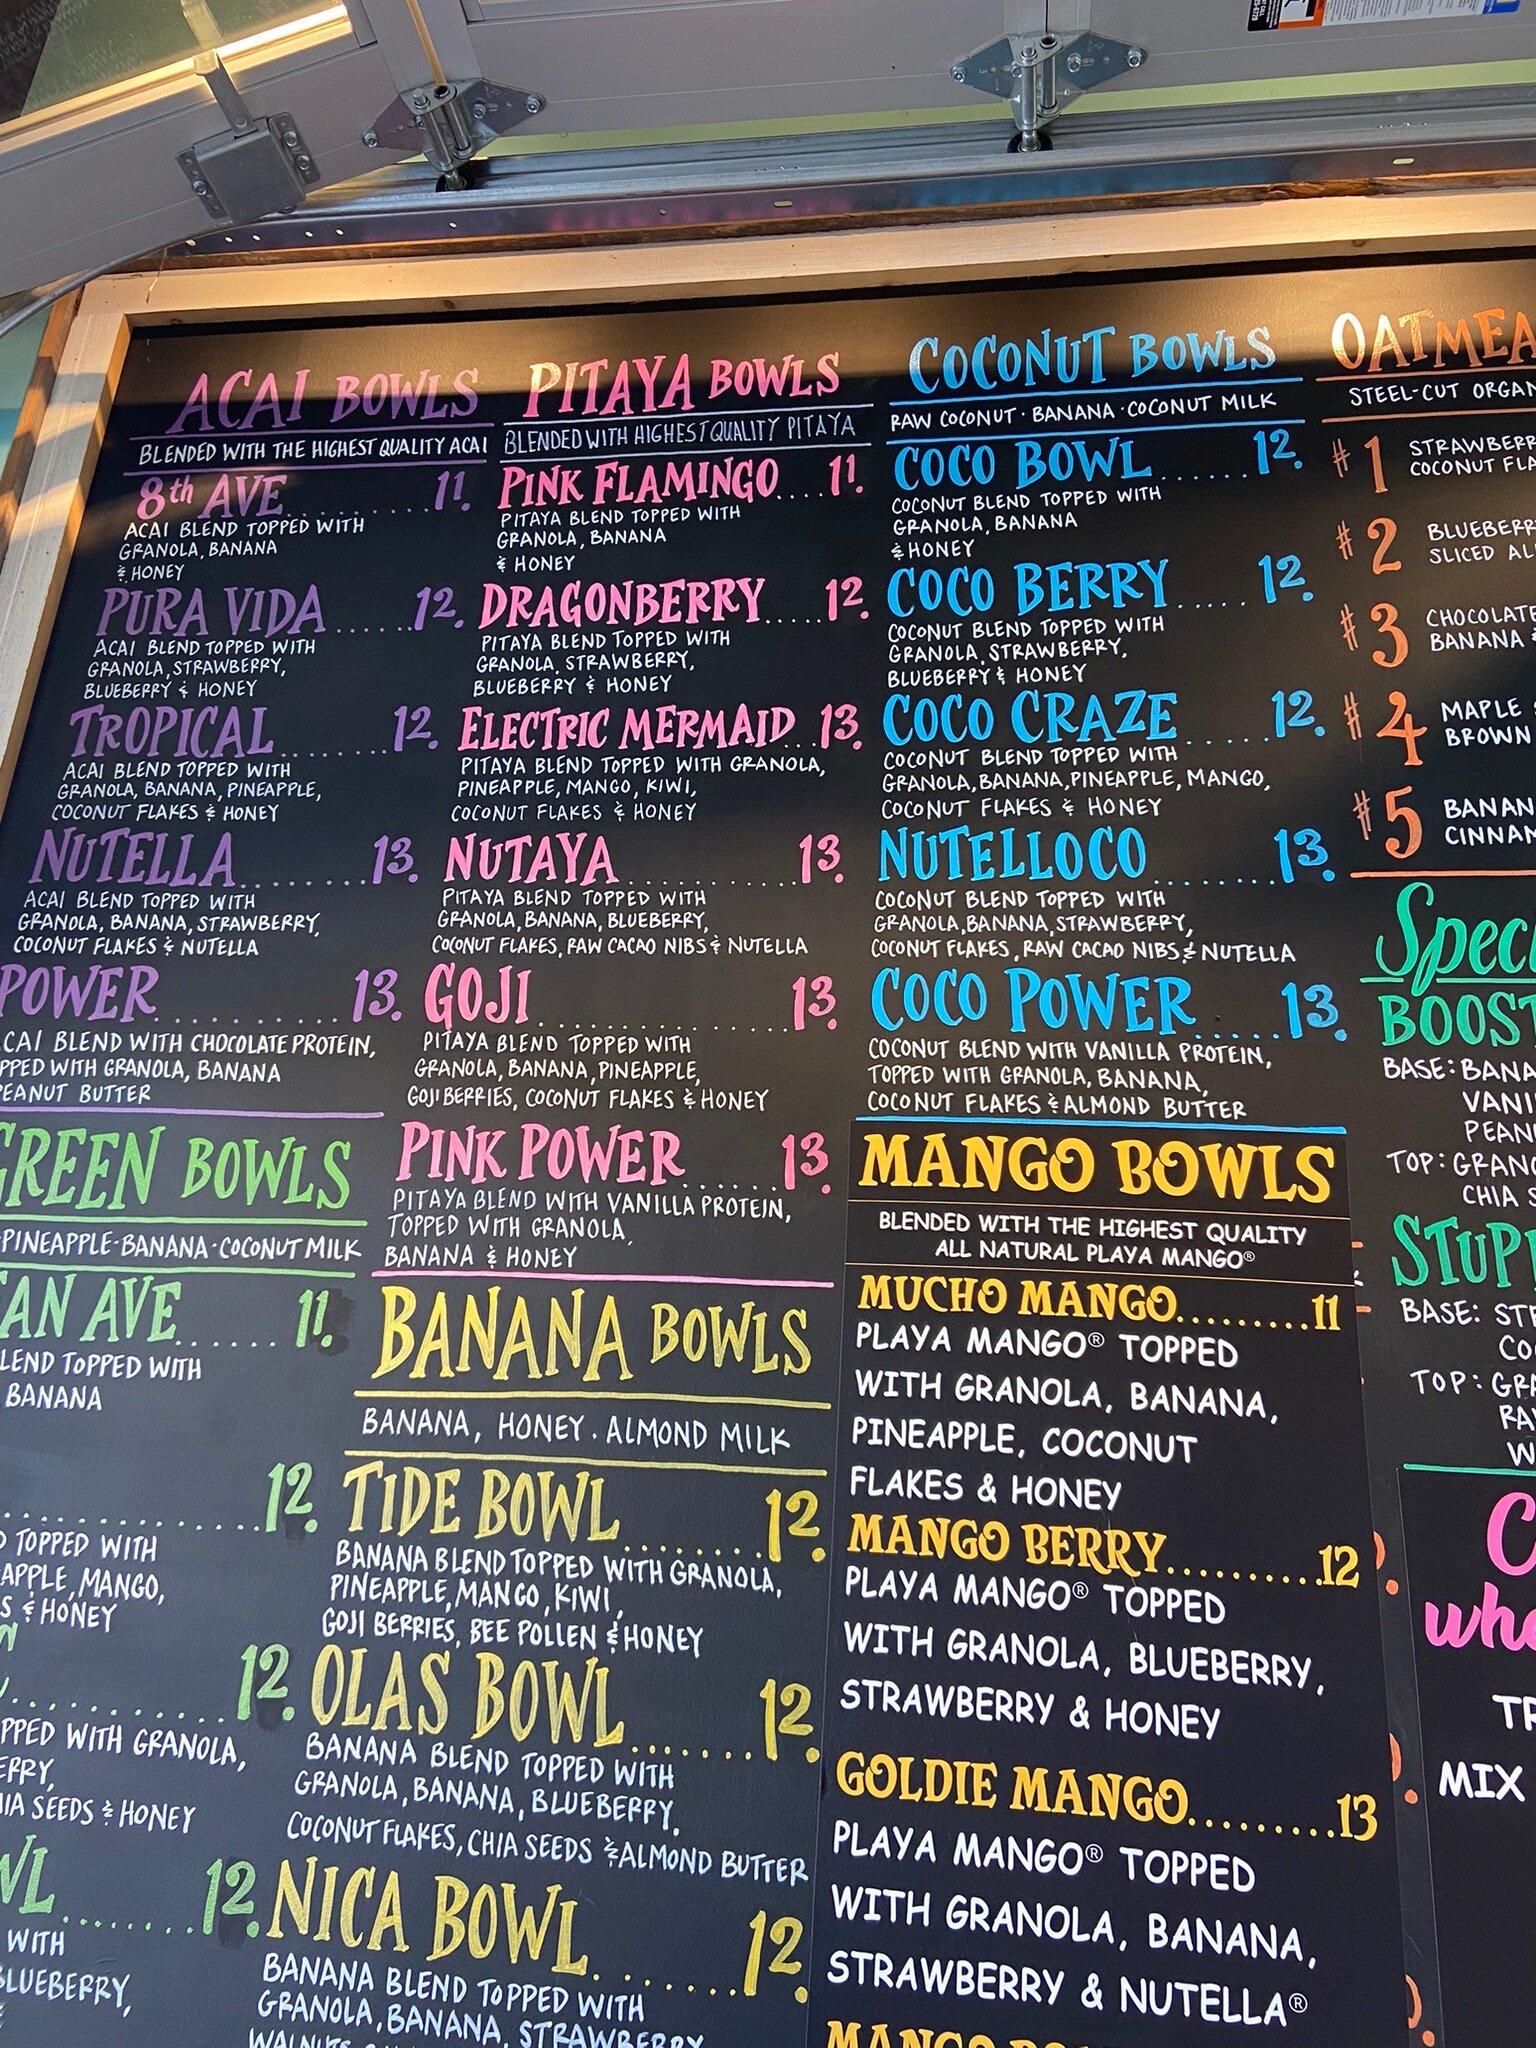 ACAI BOWLS
BLENDED WITH THE HIGHEST QUALITY ACAI
8th AVE........... 11.
ACAI BLEND TOPPED WITH
GRANOLA, BANANA
& HONEY
PURA VIDA ...... 12.
ACAI BLEND TOPPED WITH
GRANOLA, STRAWBERRY,
BLUEBERRY & HONEY
TROPICAL ....... 12.
ACAI BLEND TOPPED WITH
GRANOLA, BANANA, PINEAPPLE,
COCONUT FLAKES & HONEY
NUTELLA ........ 13.
ACAI BLEND TOPPED WITH
GRANOLA, BANANA, STRAWBERRY,
COCONUT FLAKES & NUTELLA
POWER ........... 13.
CAI BLEND WITH CHOCOLATE PROTEIN,
PPED WITH GRANOLA, BANANA
PEANUT BUTTER
GREEN BOWLS
PINEAPPLE · BANANA · COCONUT MILK
AN AVE ...... 11.
LEND TOPPED WITH
BANANA
.............. 12.
TOPPED WITH
APPLE, MANGO,
S & HONEY
............. 12.
PPED WITH GRANOLA,
ERRY,
IA SEEDS & HONEY
WL ........ 12.
WITH
BLUEBERRY,
PITAYA BOWLS
BLENDED WITH HIGHEST QUALITY PITAYA
PINK FLAMINGO .... 11.
PITAYA BLEND TOPPED WITH
GRANOLA, BANANA
& HONEY
DRAGONBERRY ..... 12.
PITAYA BLEND TOPPED WITH
GRANOLA, STRAWBERRY,
BLUEBERRY & HONEY
ELECTRIC MERMAID ... 13.
PITAYA BLEND TOPPED WITH GRANOLA,
PINEAPPLE, MANGO, KIWI,
COCONUT FLAKES & HONEY
NUTAYA ............ 13.
PITAYA BLEND TOPPED WITH
GRANOLA, BANANA, BLUEBERRY,
COCONUT FLAKES, RAW CACAO NIBS & NUTELLA
GOJI ................ 13.
PITAYA BLEND TOPPED WITH
GRANOLA, BANANA, PINEAPPLE,
GOJI BERRIES, COCONUT FLAKES & HONEY
PINK POWER ...... 13.
PITAYA BLEND WITH VANILLA PROTEIN,
TOPPED WITH GRANOLA,
BANANA & HONEY
BANANA BOWLS
BANANA, HONEY . ALMOND MILK
TIDE BOWL ........ 12.
BANANA BLEND TOPPED WITH GRANOLA,
PINEAPPLE, MANGO, KIWI,
GOJI BERRIES, BEE POLLEN & HONEY
OLAS BOWL ....... 12.
BANANA BLEND TOPPED WITH
GRANOLA, BANANA, BLUEBERRY,
COCONUT FLAKES, CHIA SEEDS & ALMOND BUTTER
NICA BOWL ....... 12.
BANANA BLEND TOPPED WITH
GRANOLA, BANANA, STRAWBERRY
COCONUT BOWLS
RAW COCONUT · BANANA · COCONUT MILK
COCO BOWL ....... 12.
COCONUT BLEND TOPPED WITH
GRANOLA, BANANA
& HONEY
COCO BERRY ..... 12.
COCONUT BLEND TOPPED WITH
GRANOLA, STRAWBERRY,
BLUEBERRY & HONEY
COCO CRAZE ..... 12.
COCONUT BLEND TOPPED WITH
GRANOLA, BANANA, PINEAPPLE, MANGO,
COCONUT FLAKES & HONEY
NUTELLOCO ....... 13.
COCONUT BLEND TOPPED WITH
GRANOLA, BANANA, STRAWBERRY,
COCONUT FLAKES, RAW CACAO NIBS & NUTELLA
COCO POWER ..... 13.
COCONUT BLEND WITH VANILLA PROTEIN,
TOPPED WITH GRANOLA, BANANA,
COCONUT FLAKES & ALMOND BUTTER
MANGO BOWLS
BLENDED WITH THE HIGHEST QUALITY
ALL NATURAL PLAYA MANGO®
MUCHO MANGO.........11
PLAYA MANGO® TOPPED
WITH GRANOLA, BANANA,
PINEAPPLE, COCONUT
FLAKES & HONEY
MANGO BERRY..........12
PLAYA MANGO® TOPPED
WITH GRANOLA, BLUEBERRY,
STRAWBERRY & HONEY
GOLDIE MANGO.........13
PLAYA MANGO® TOPPED
WITH GRANOLA, BANANA,
STRAWBERRY & NUTELLA®
MANGO
OATMEA
STEEL-CUT ORGAN
#1 STRAWBERR
COCONUT FLA
#2 BLUEBERR
SLICED AL
#3 CHOCOLATE
BANANA &
#4 MAPLE
BROWN
#5 BANAN
CINNAM
Spec
BOOST
BASE: BANA
VANI
PEAN
TOP: GRANO
CHIA S
STUP
BASE: STE
CO
TOP: GRA
RA
W
C
who
TR
MIX